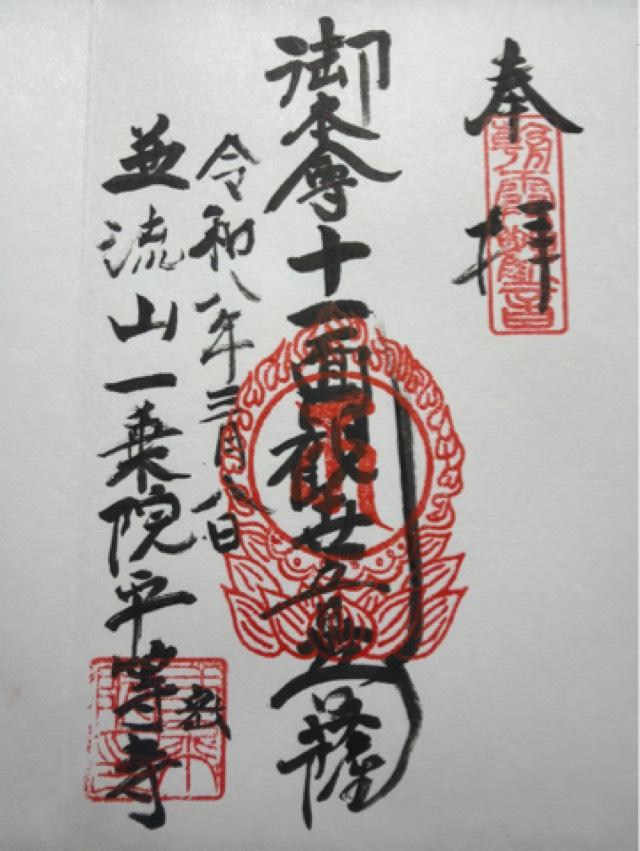 奉拝
御本尊十一面観世音菩薩
令和八年三月八日
並流山一乗院平等寺